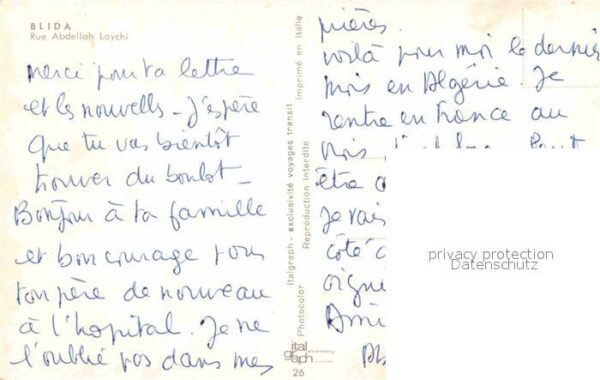 BLIDA
Rue Abdellah Laychi
merci pour ta lettre
et les nouvelles - J'espère
que tu vas bientôt
trouver du boulot -
Bonjour à ta famille
et bon courage pour
ton père de nouveau
à l'hopital. Je ne
l'oublie pas dans mes
Italgraph - exclusivité voyages transit
Reproduction interdite
Imprimé en Italie
Photocolor
ital
graph
26
prières.
voilà pour moi le dernier
mois en Algérie. Je
rentre en France au
mois Peut
être
Je vais
côté
Ami
privacy protection
Datenschutz